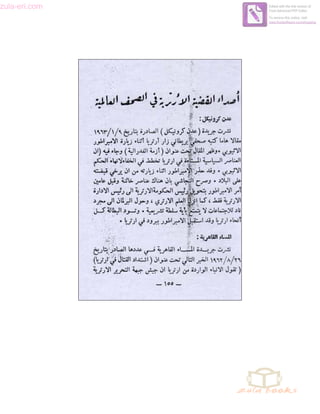 zula-eri.com
أصداء القضية الارترية في الصحف العالمية
عدن كرونيكل :
نشرت جريدة ( عدن كرونيكل ) الصادرة بتاريخ ١٩٦٣/١/٩
مقالا هاما كتبه صحفي بريطاني زار ارتريا أثناء زيارة الامبراطور
الاثيوبي ٠ وظهر المقال تحت عنوان ( أزمة الفدرالية ) وجاء فيه (ان
العناصر السياسية في ارتريا تخطط في الخفاء لانهاء الحكم
الاثيوبي ٠ وقد حذر الامبراطور اثناء زيارته من ان يرخي قبضته
على البلاد ٠ وصرح النجاشي بان هناك عناصر خائنة وقبل عامين
أمر الامبراطور بتحويل رئيس الحكومة الارترية الى رئيس الادارة
الارترية فقط ، كما انزل العلم الارتري ، وحول البرلمان الى مجرد
ناد للاجتماعات لا يتمتع بأية سلطة تشريعية ٠ وتسود البطالة كل
أنحاء ارتريا وقد استقبل الامبراطور ببرود في ارتريا ٠
المساء القاهرية :
نشرت جريدة المساء القاهرية في عددها الصادر بتاريخ
١٩٦٢/٨/٢٦ الخبر التالي تحت عنوان ( اشتداد القتال في ارتريا)
( تقول الانباء الواردة من ارتريا ان جيش جبهة التحرير الارترية
— ١٥٥ —